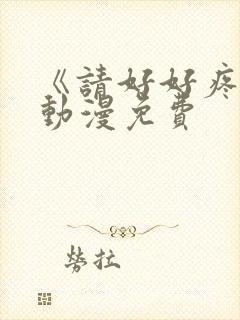 《請好好疼
動漫免費
勞拉